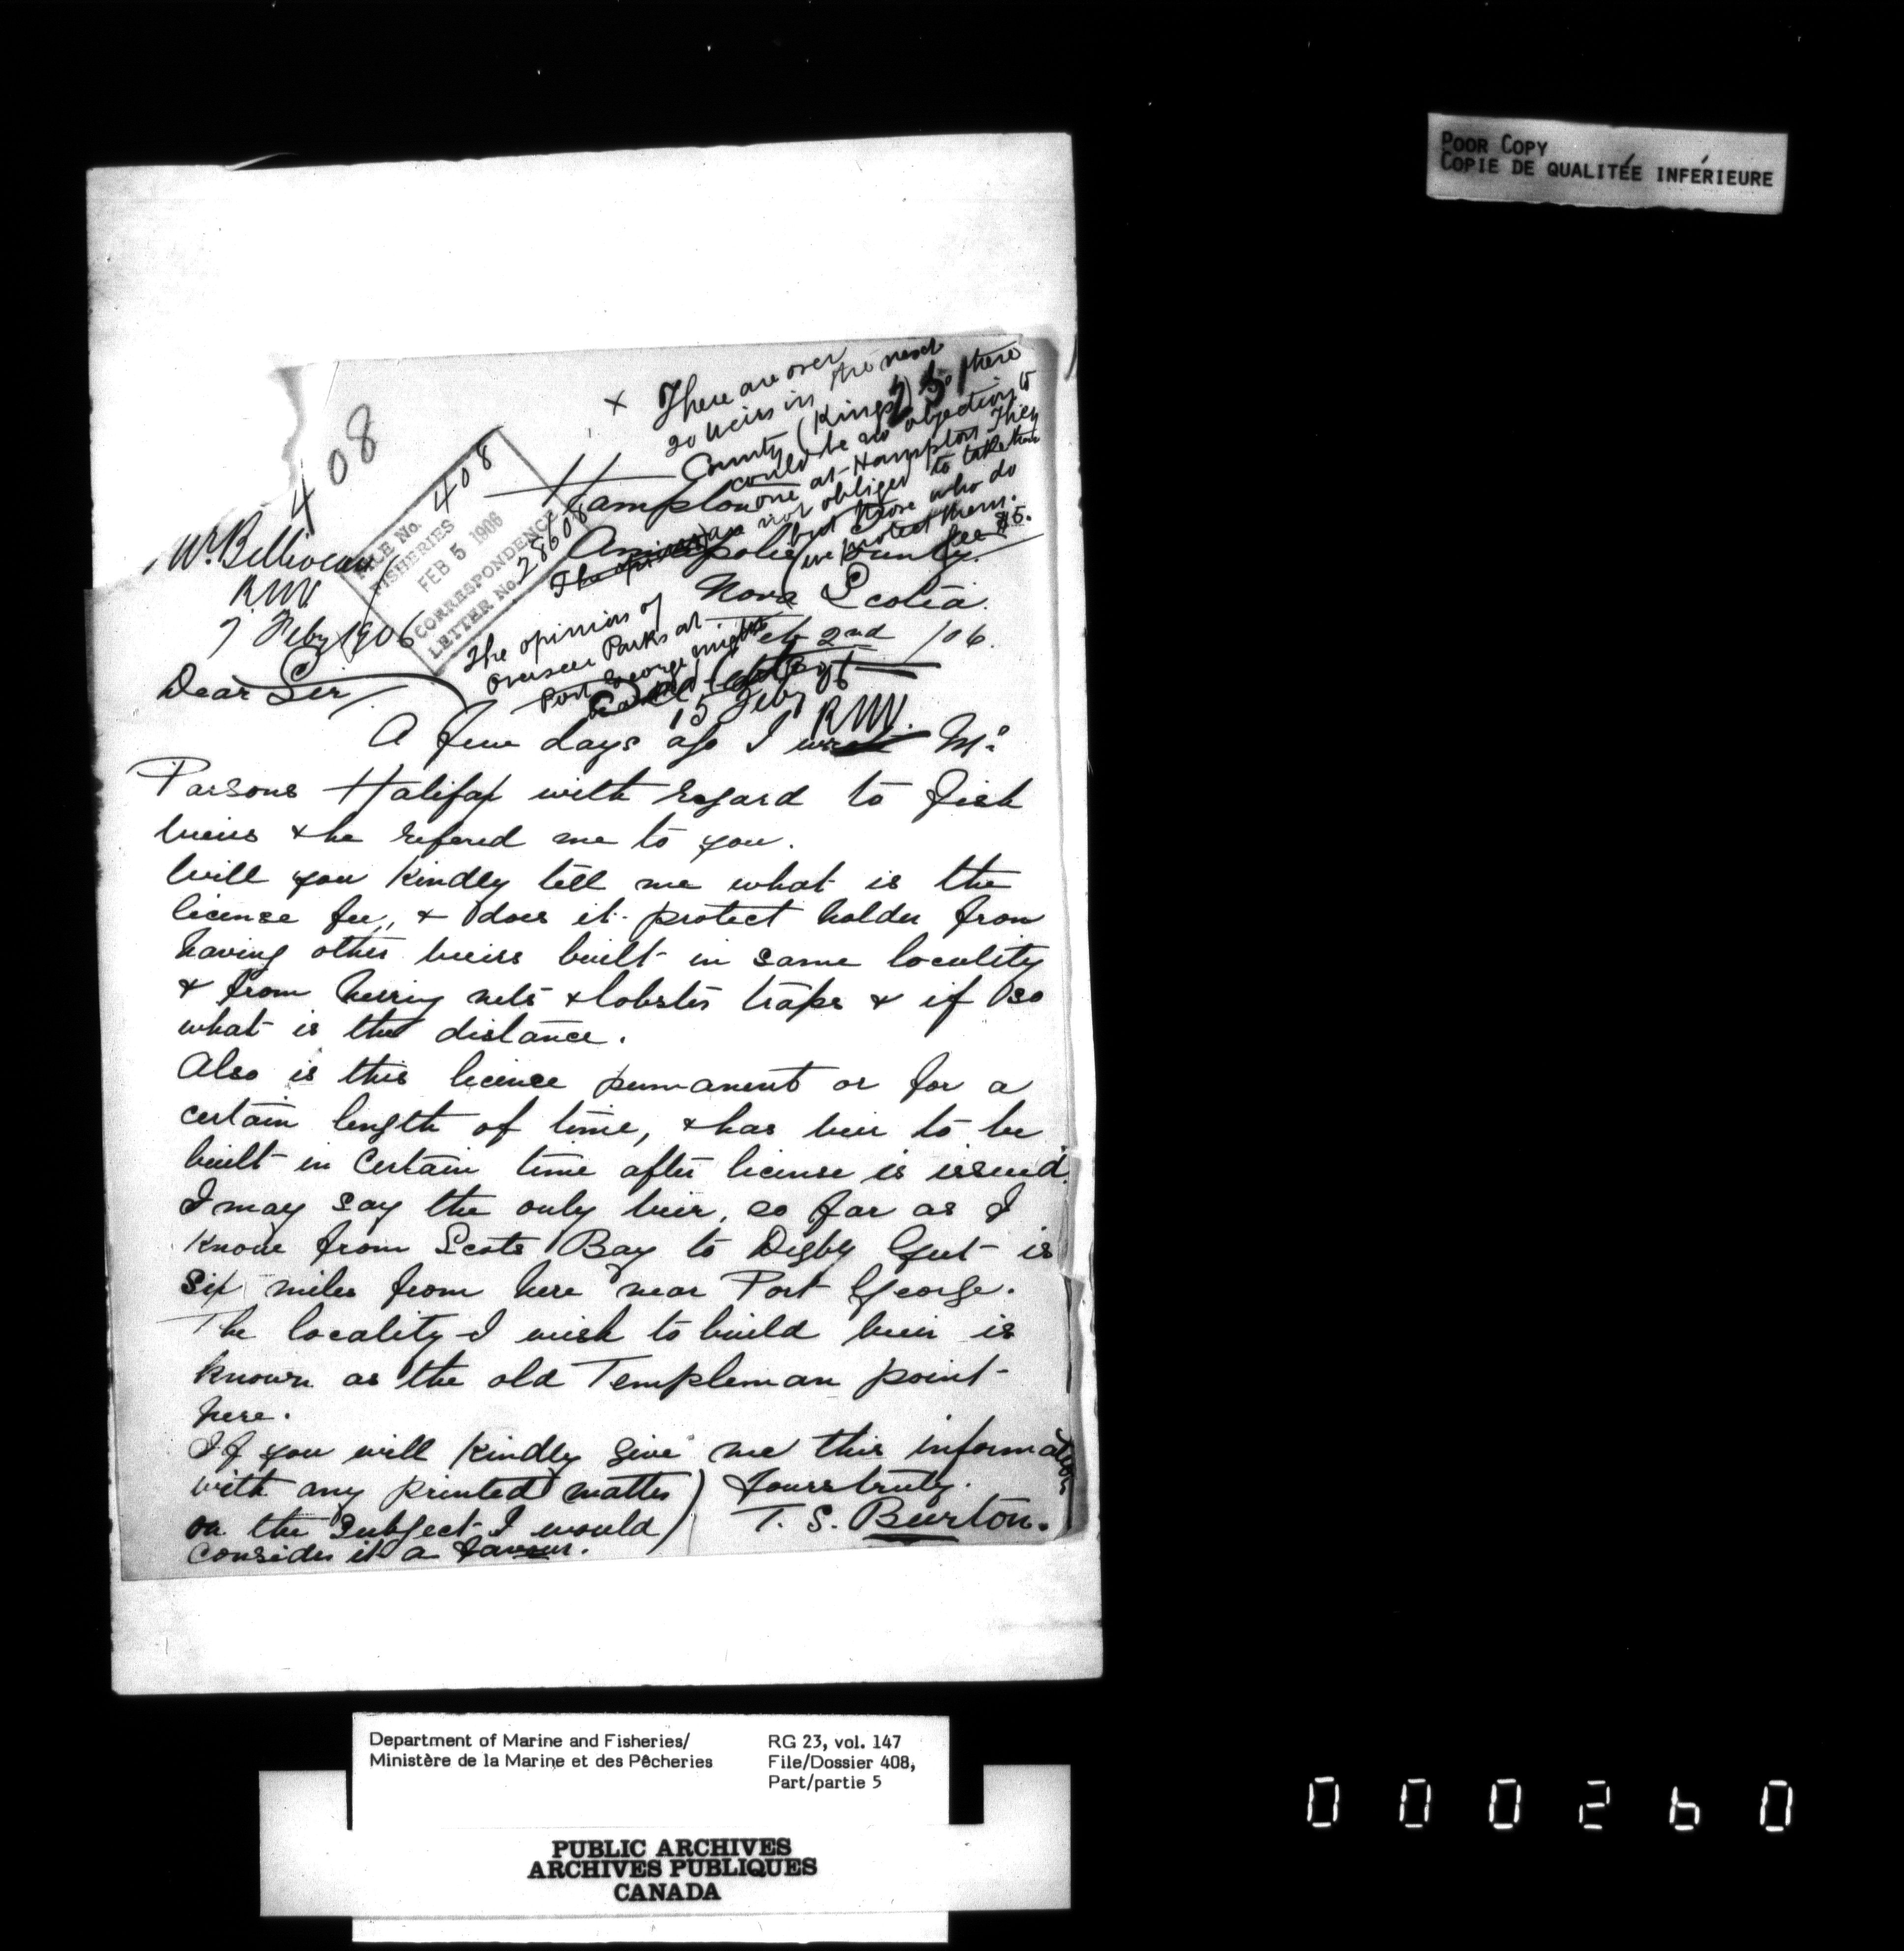 POOR COPY
COPIE DE QUALITÉE INFÉRIEURE
408
x There are over
20 weirs in the next
County (Kings) So there
could be no objection to
one at Hampton. They
are not obliged to take them
but those who do
we protect them.
fee $5.
FILE No. 408
FISHERIES
FEB 5 1906
CORRESPONDENCE
LETTER No. 28608
Mr Belliveau
R.N.V.
7 Feby 1906
Hampton
Annapolis County.
Nova Scotia.
Feb 2nd /06.
The opinion
The opinion of
Overseer Parks at
Port George might
15 Feby
R.N.V.
Dear Sir
A few days ago I wrote Mr
Parsons Halifax with regard to fish
weirs & he refered me to you.
Will you kindly tell me what is the
license fee, & does it protect holder from
having other weirs built in same locality
& from herring nets & lobster traps & if so
what is the distance.
Also is this licence permanent or for a
certain length of time, & has weir to be
built in certain time after license is issued.
I may say the only weir, so far as I
know from Scots Bay to Digby Gut is
six miles from here near Port George.
The locality I wish to build weir is
known as the old Templeman point
here.
If you will kindly give me this information
with any printed matter) Yours truly.
on the subject I would) T. S. Burton.
consider it a favour.
Department of Marine and Fisheries/
Ministère de la Marine et des Pêcheries
RG 23, vol. 147
File/Dossier 408,
Part/partie 5
PUBLIC ARCHIVES
ARCHIVES PUBLIQUES
CANADA
000260